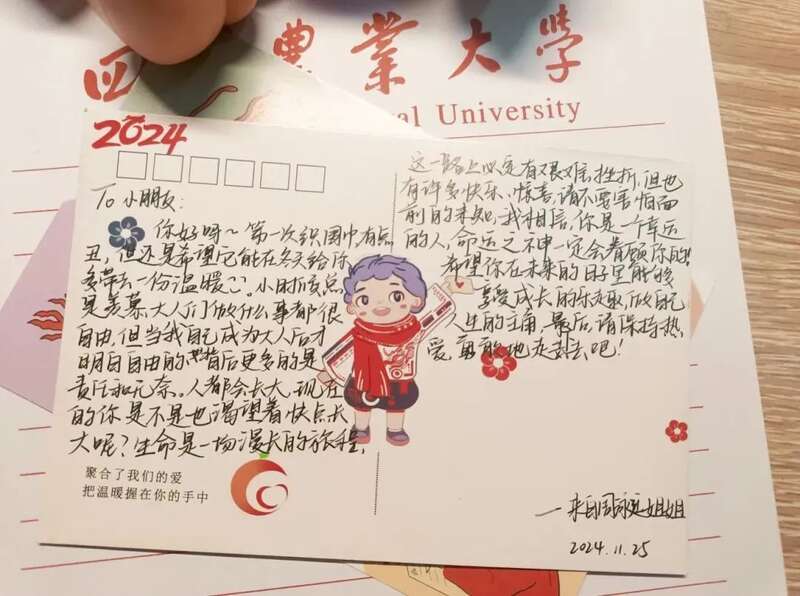 農業大學
al University
2024
To 小朋友:
你好呀~第一次织围巾,有点
丑,但还是希望它能在冬天给你
多带去一份温暖。小时候总
是羡慕大人们做什么事都很
自由,但当我自己成为大人后才
明白自由的背后更多的是
责任和无奈。人都会长大,现在
的你是不是也渴望着快点长
大呢?生命是一场漫长的旅程,
聚合了我们的爱
把温暖握在你的手中
这一路上必定有艰难挫折,但也
有许多快乐、惊喜,请不要害怕面
前的未知,我相信,你是一个幸运
的人,命运之神一定会眷顾你的!
希望你在未来的日子里能够
享受成长的乐趣,做自己
人生的主角,最后,请保持热
爱,勇敢地走下去吧!
—来自周 姐姐
2024.11.25